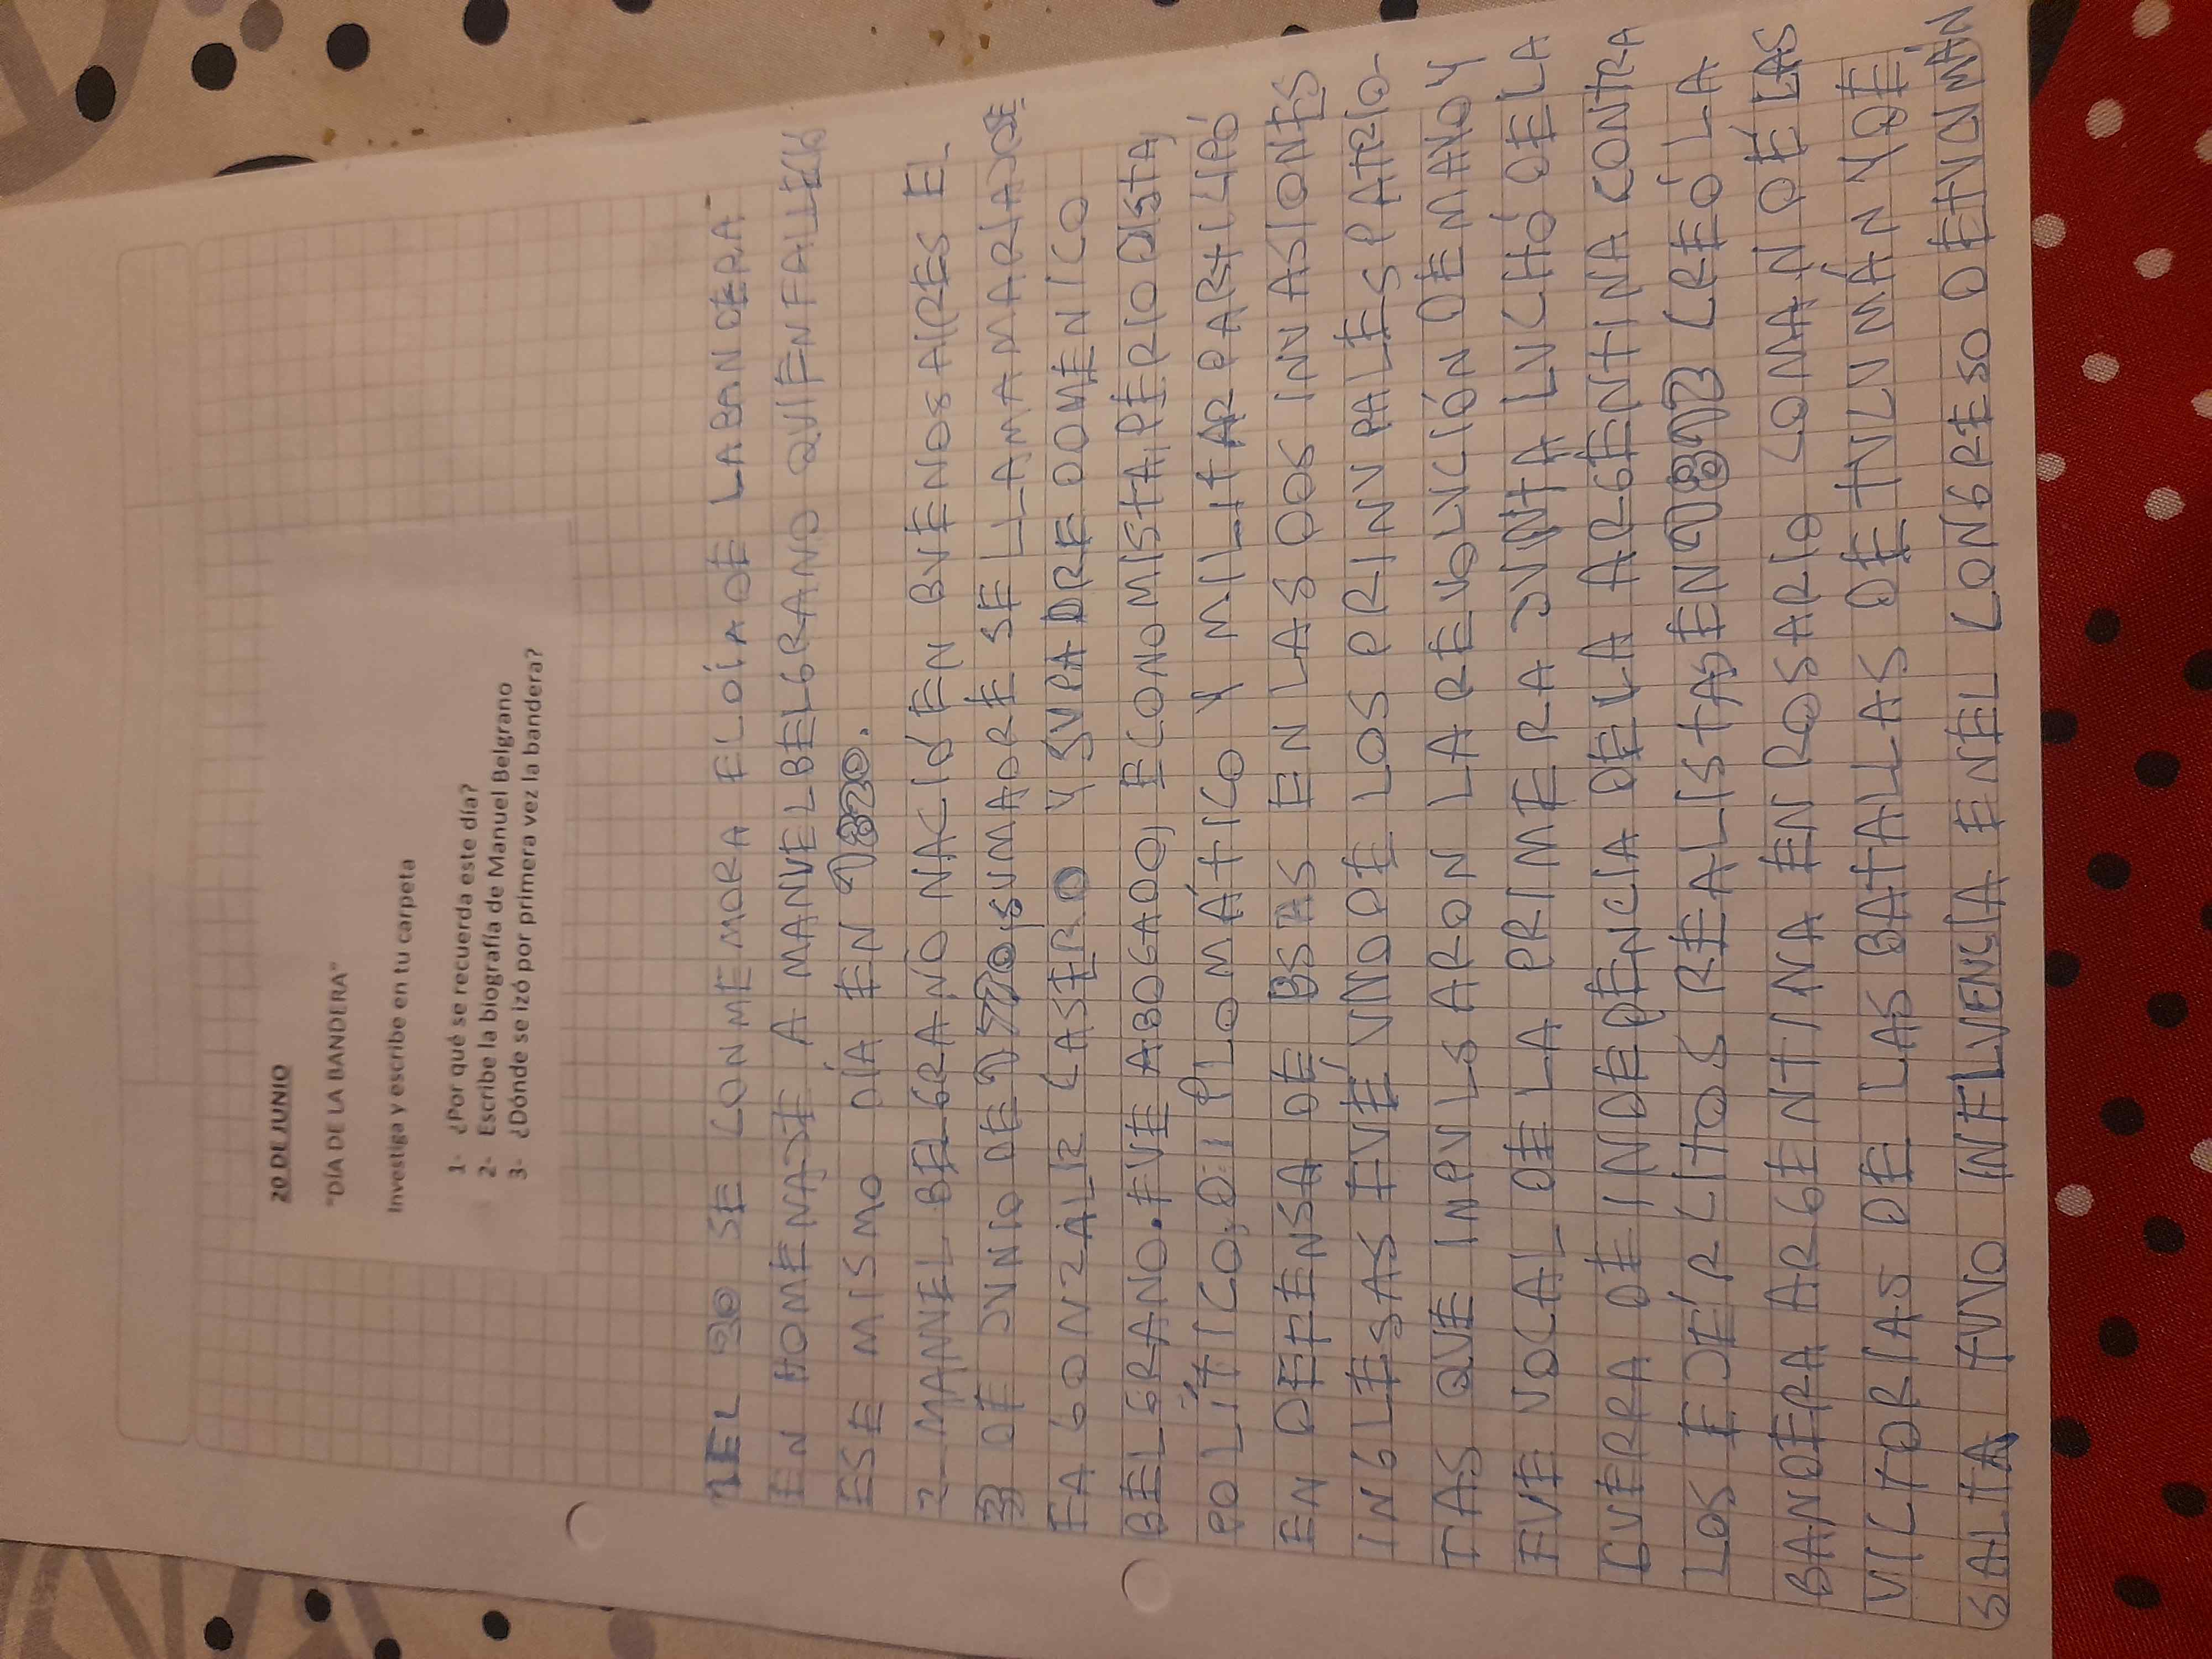 20 DE JUNIO
"DÍA DE LA BANDERA"
Investiga y escribe en tu carpeta
1- ¿Por qué se recuerda este día?
2- Escribe la biografía de Manuel Belgrano
3- ¿Dónde se izó por primera vez la bandera?
1 EL 20 SE CONMEMORA EL DÍA DE LA BANDERA
EN HOMENAJE A MANUEL BELGRANO QUIEN FALLECIÓ
ESE MISMO DÍA EN 1820.
2- MANUEL BELGRANO NACIÓ EN BUENOS AIRES EL
3 DE JUNIO DE 1770, SU MADRE SE LLAMA MARÍA JOSE
FA GONZALIZ CASERO Y SU PADRE DOMENICO
BELGRANO. FUE ABOGADO, ECONOMISTA, PERIODISTA,
POLÍTICO, DIPLOMÁTICO Y MILITAR PARTICIPÓ
EN DEFENSA DE BS AS EN LAS DOS INVASIONES
INGLESAS FUÉ UNO DE LOS PRINVPALES PATRIO-
TAS QUE INPULSARON LA REVOLUCIÓN DE MAYO Y
FUE VOCAL DE LA PRIMERA JUNTA LUCHÓ DE LA
GUERRA DE INDEPDENCIA DE LA ARGENTINA CONTRA
LOS EJÉRCITOS REALISTAS EN 1812 CREÓ LA
BANDERA ARGENTINA EN ROSARIO COMAN DÉ LAS
VICTORIAS DE LAS BATALLAS DE TUCUMÁN Y DE
SALTA TUVO INFLUENCIA EN EL CONGRESO DE TUCUMÁN